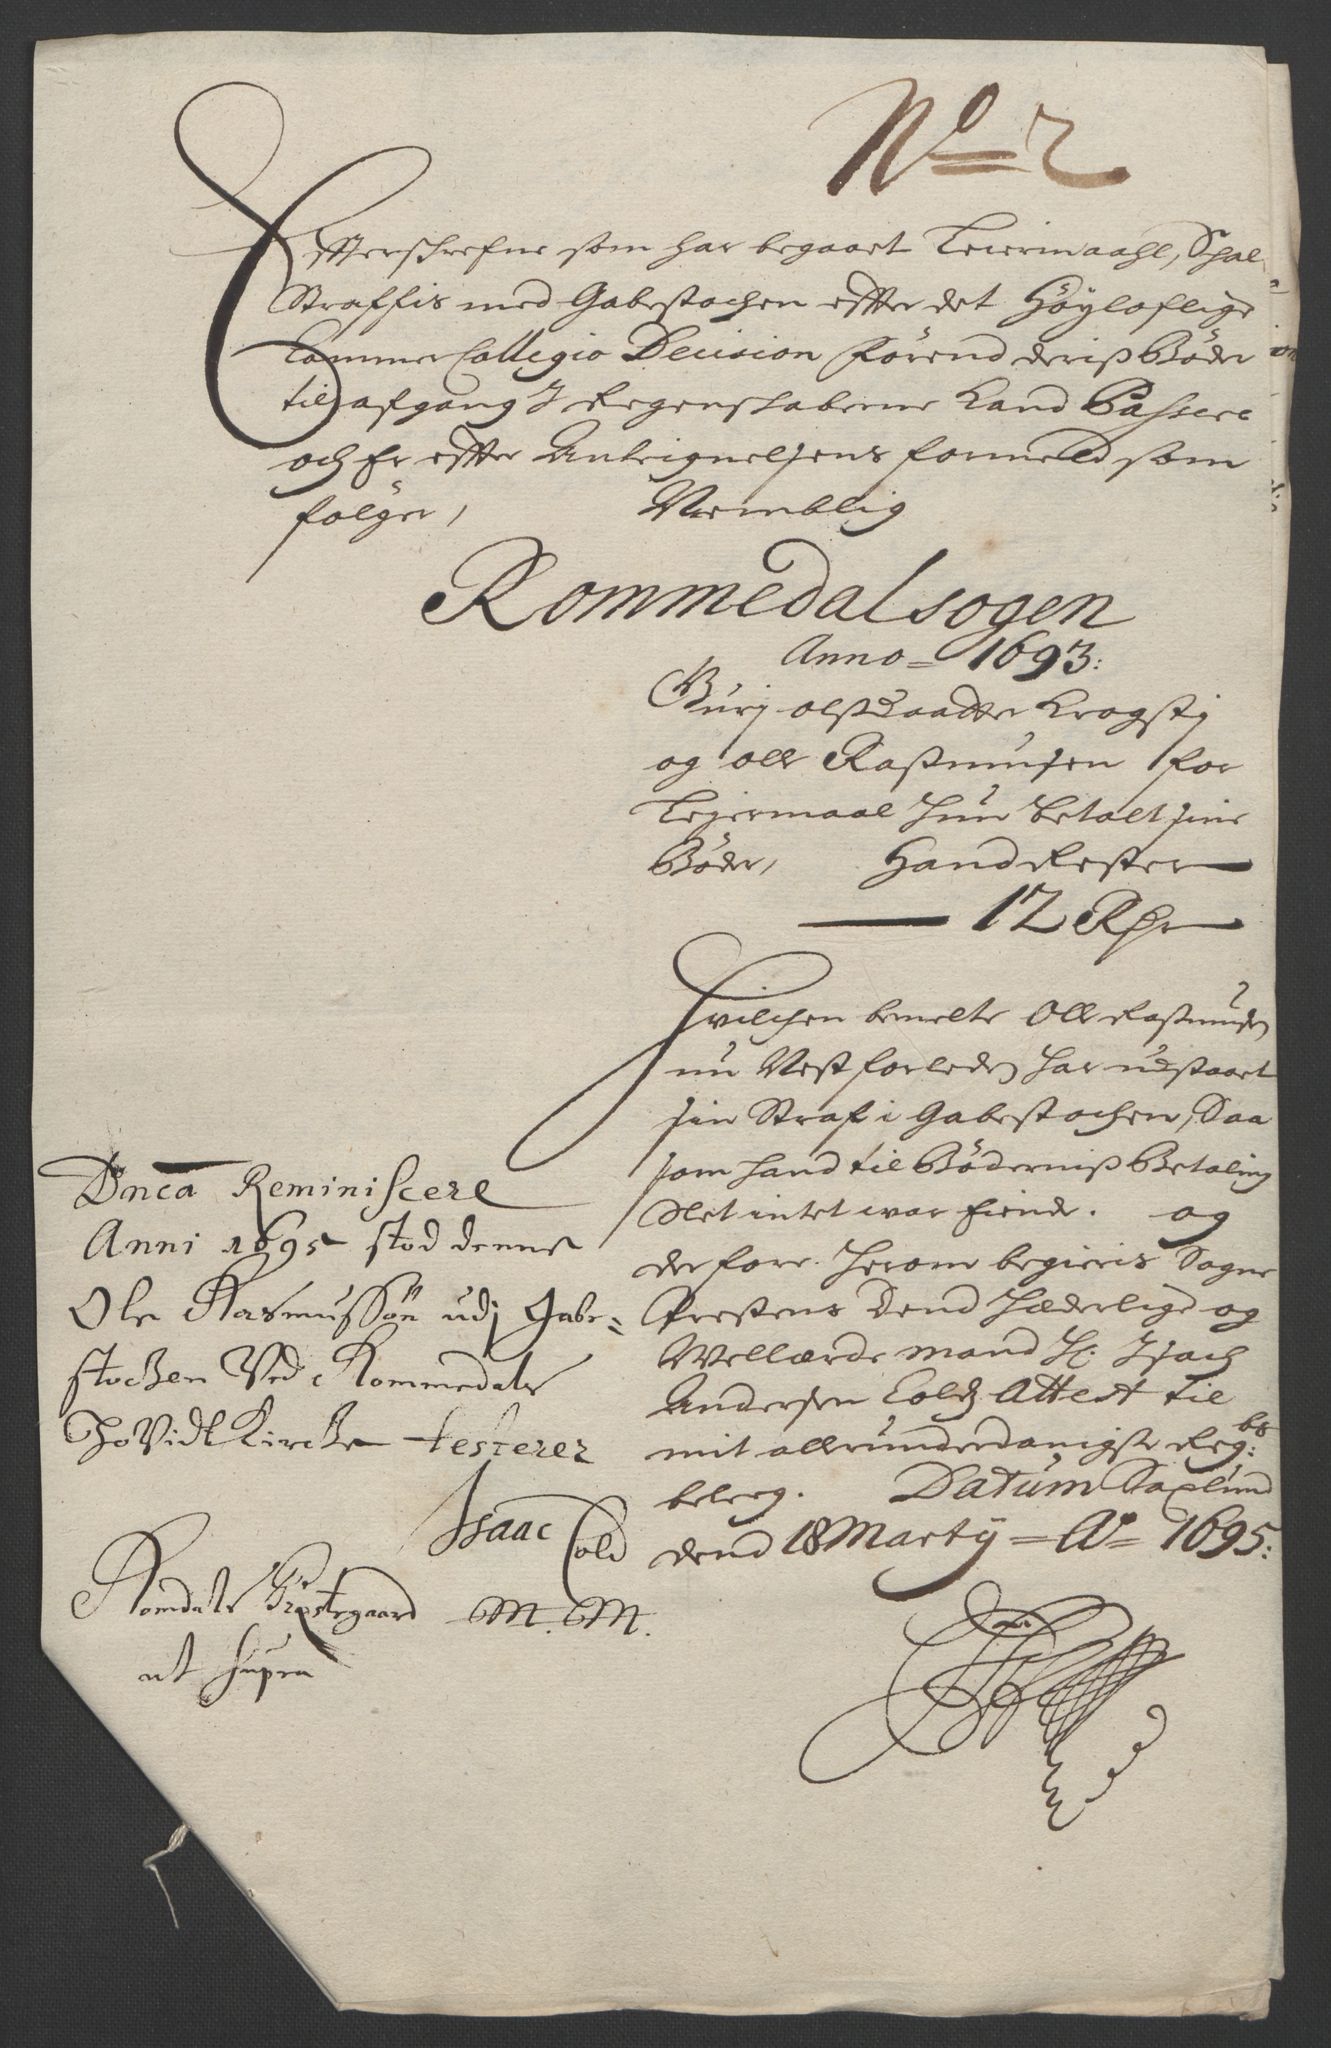 No 2
Effterschrefne som har begaaet Leiermaahl, Schal
Straffis med Gabestochen effter det Höyloflige
Cammer Collegio Decision förend deris Böder
til afgang I Regenskaberne Kand Passere
och Er effter Anteignelsens formeld som
følger, Nemblig
Rommedal sogen
Anno 1693:
Gurj olsdaatter Krogstj
og olle Rasmusen for
Leiermaal hun betalt sine
Böder, Hand Rester
12 Rdr
Hvilchen bemelte Olle Rasmusen
nu Nest forleden har udstaaet
sin Straf i Gabestochen, Saa
som hand til Bödernis Betaling
Slet intet war Eiende. og
derfore herom begieris Sogne
Prestens Dend Hæderlige og
Wellærde mand Hr. Isach
Andersen Colds Attest til
mit allerunderdanigste Reg:bs
beleeg. Datum Saxlund
dend 18 Marty Ao 1695:
Dnca Reminiscere
Anni 1695 stod denne
Ole Rasmussön udj Gabe-
stocken Ved Rommedals
HoVidKircke testerer
Isaac Cold
Romdals Prestegaard M. M.
ut supra